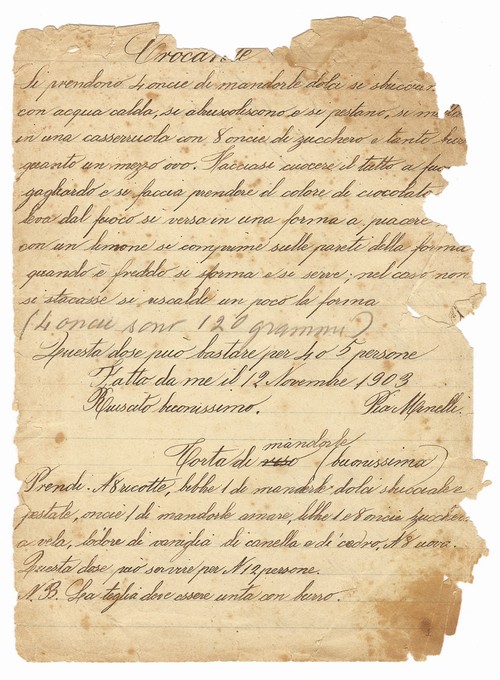 Crocante
Si prendono 4 oncie di mandorle dolci si sbuccian
con acqua calda, si abrusoliscono e si pestano, si met
in una casseruola con 8 oncie di zucchero e tanto bur
quanto un mezzo ovo. Facciasi cuocere il tutto a fuo
gagliardo e si faccia prendere il colore di cioccolat
leva dal fuoco si versa in una forma a piacere
con un limone si comprime sulle pareti della forma
quando è freddo si sforma e si serve; nel caso non
si stacasse si riscalde un poco la forma
(4 oncie sono 120 grammi)
Questa dose può bastare per 4 o 5 persone
Fatto da me il 12 Novembre 1903
Riuscito buonissimo. Pia
mandorle
Torta di riso buonissima)
Prendi. N 8 ricotte, libbre 1 di mandorle dolci sbucciate e
pestate, oncie 1 di mandorle amare, libbre 1 e 8 oncie zuccher
a vela, l'odore di vaniglia di canella e di cedro, N 8 uova.
Questa dose può servire per N 12 persone.
N. B. La teglia dove essere unta con burro.